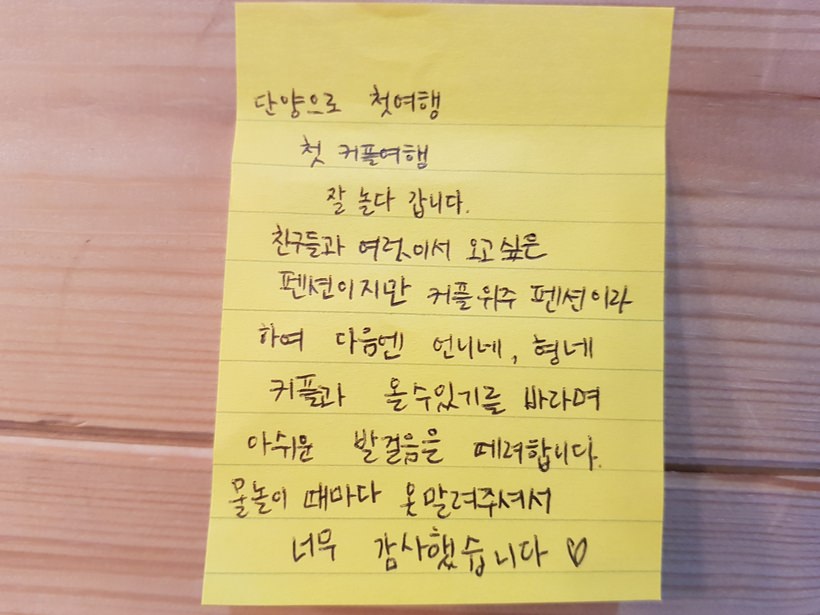 단양으로 첫여행
첫 커플여행
잘 놀다 갑니다.
친구들과 여럿이서 오고싶은
펜션이지만 커플위주 펜션이라
하여 다음엔 언니네, 형네
커플과 올수있기를 바라며
아쉬운 발걸음을 떼려합니다.
물놀이 때마다 옷말려주셔서
너무 감사했습니다 ♡